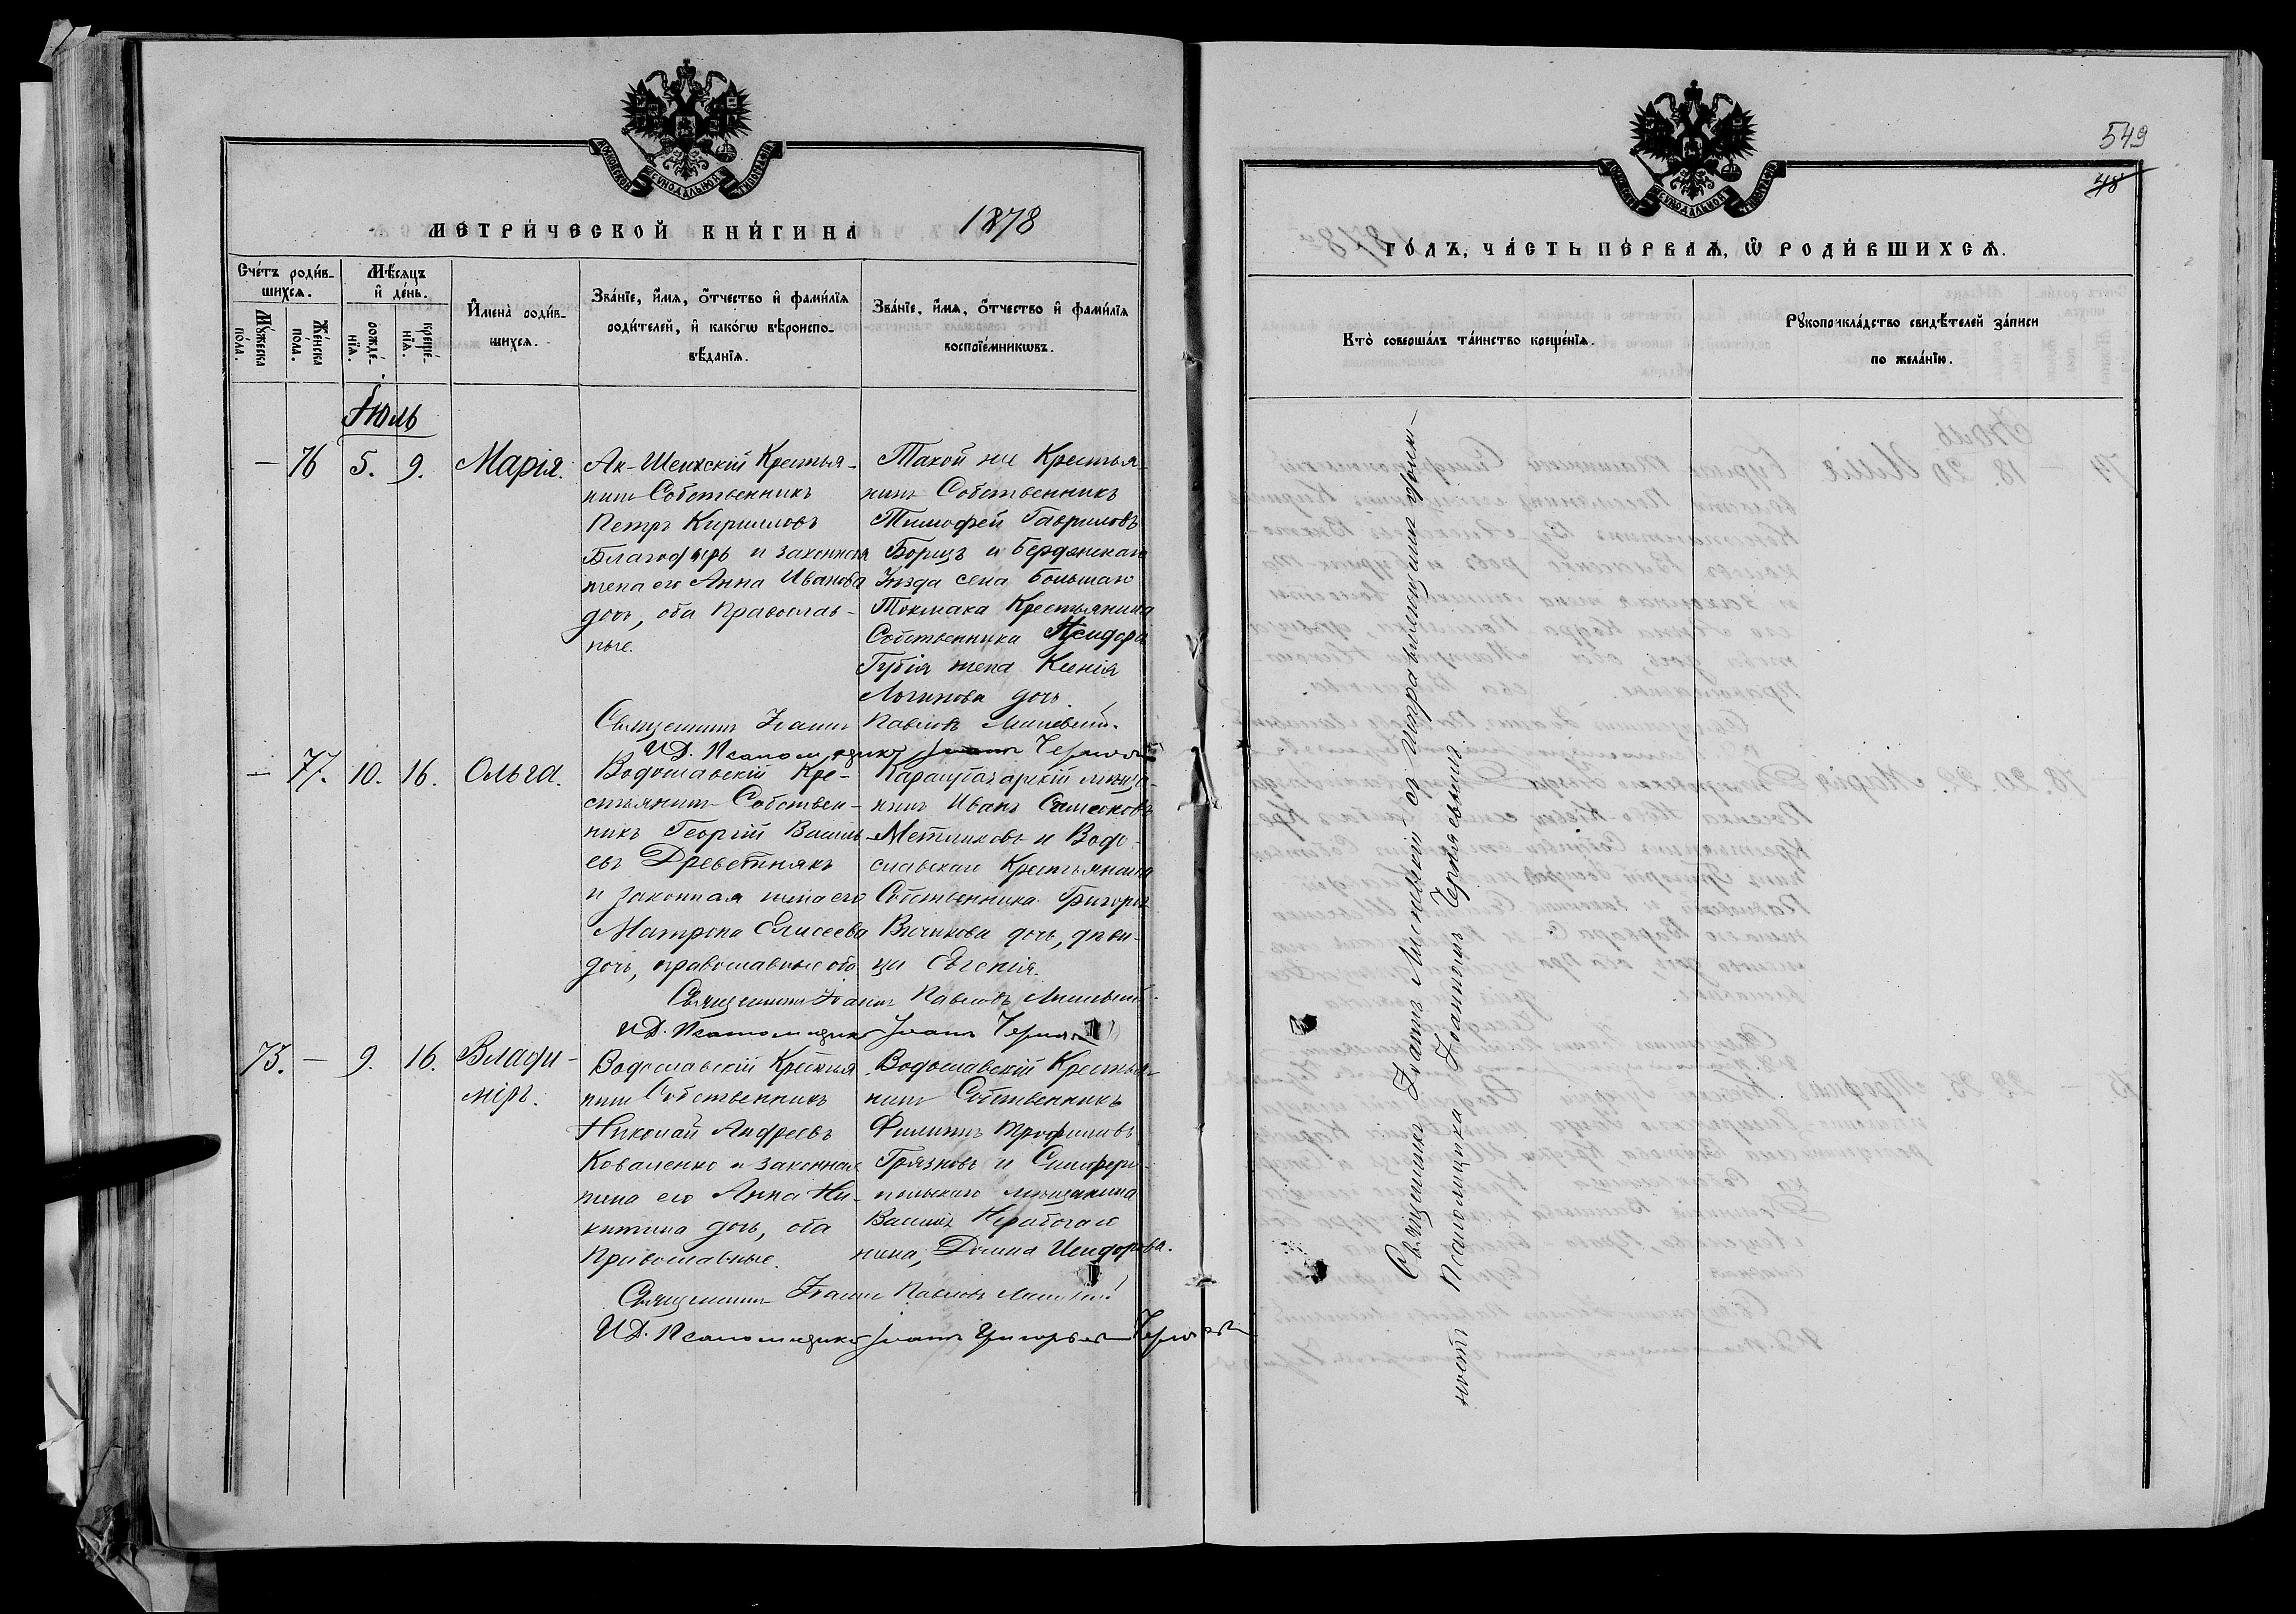 МОСКОВСКОЙ СѴНОДАЛЬНОЙ ТИПОГРАФІИ
МЕТРИ́ЧЕСКОЙ КНИ́ГИ НА 1878
Счетъ роди́в-
шихсѧ.
Мꙋ́жеска
по́ла.
Же́нска
по́ла.
Мѣ́сѧцъ
и҆ де́нь.
рожде́-
нїѧ.
креще́-
нїѧ.
И҆мена̀ роди́в-
шихсѧ.
Зва́нїе, и҆́мѧ, ѻ҆́тчество и҆ фами́лїѧ
роди́телей, и҆ како́гѡ вѣроиспо-
вѣ́данїѧ.
Зва́нїе, и҆́мѧ, ѻ҆́тчество и҆ фами́лїѧ
воспрїе́мникѡвъ.
Іюль
— 76 5. 9. Марія.
Ак-Шеихскій Крестья-
нинъ Собственникъ
Петръ Кирилловъ
Благодыръ и законная
жена его Анна Иванова
дочь, оба Православ-
ные.
Такой же Крестья-
нинъ Собственникъ
Тимофей Гавриловъ
Борщъ и Бердянскаго
Уѣзда села Большаго
Токмака Крестьянина
Собственника Исидора
Губія жена Ксенія
Логинова дочь.
Священникъ Іоаннъ Павловъ Лисневскій.
И.Д. Псаломщика Іоаннъ
— 77. 10. 16. Ольга.
Водославскій Кре-
стьянинъ Собствен-
никъ Георгій Василь-
евъ Древетнякъ
и законная жена его
Матрона Елисеева
дочь, православные оба
мѣща-
нинъ Иванъ Симеоновъ
Метликовъ и Водо-
славскаго Крестьянина
Собственника Григорія
дочь, дѣви-
ца Евгенія.
Священникъ Іоаннъ Павловъ Лисневскій
И.Д. Псаломщика Іоаннъ
75. — 9. 16. Влади-
міръ.
Водославскій Крестья-
нинъ Собственникъ
Николай Андреевъ
Коваленко и законная
жена его Анна Ни-
китина дочь, оба
Православные.
Водославскій Крестья-
нинъ Собственникъ
Филиппъ Трофимовъ
Грязновъ и Симферо-
польскаго мѣщанина
Василія
жена, Домна Исидорова.
Священникъ Іоаннъ Павловъ Лисневскій
И.Д. Псаломщика Іоаннъ Григорьевъ
549
48
МОСКОВСКОЙ СѴНОДАЛЬНОЙ ТИПОГРАФІИ
ГО́ДЪ, ЧА́СТЬ ПЕ́РВАѦ, Ѡ҆ РОДИ́ВШИХСѦ.
Кто̀ соверша́лъ та́инство креще́нїѧ.
Рꙋкоприкла́дство свидѣ́телей за́писи
по жела́нїю.
Священникъ Іоаннъ Лисневскій съ исправляющимъ долж-
ность Псаломщика Іоанномъ Чернявскимъ